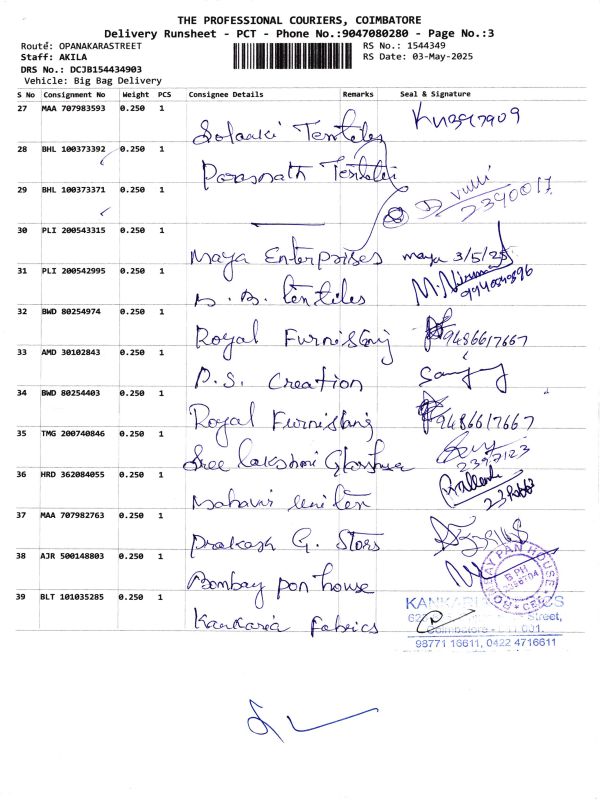 THE PROFESSIONAL COURIERS, COIMBATORE
Delivery Runsheet - PCT - Phone No.:9047080280 - Page No.:3
Route: OPANAKARASTREET
RS No.: 1544349
Staff: AKILA
RS Date: 03-May-2025
DRS No.: DCJB154434903
Vehicle: Big Bag Delivery
S No Consignment No Weight PCS Consignee Details Remarks Seal & Signature
27 MAA 707983593 0.250 1
28 BHL 100373392 0.250 1
29 BHL 100373371 0.250 1
2390017
30 PLI 200543315 0.250 1
Maya Enterprises maya 3/5/25
31 PLI 200542995 0.250 1
32 BWD 80254974 0.250 1
Royal 9486617667
33 AMD 30102843 0.250 1
P.S. Creation
34 BWD 80254403 0.250 1
Royal 9486617667
35 TMG 200740846 0.250 1
Sree Lakshmi
36 HRD 362084055 0.250 1
37 MAA 707982763 0.250 1
Prakash G. Stors
38 AJR 500148803 0.250 1
Bombay pan house
PAN HOUSE
39 BLT 101035285 0.250 1
Kankaria Fabrics
Street,
98771 16611, 0422 4716611